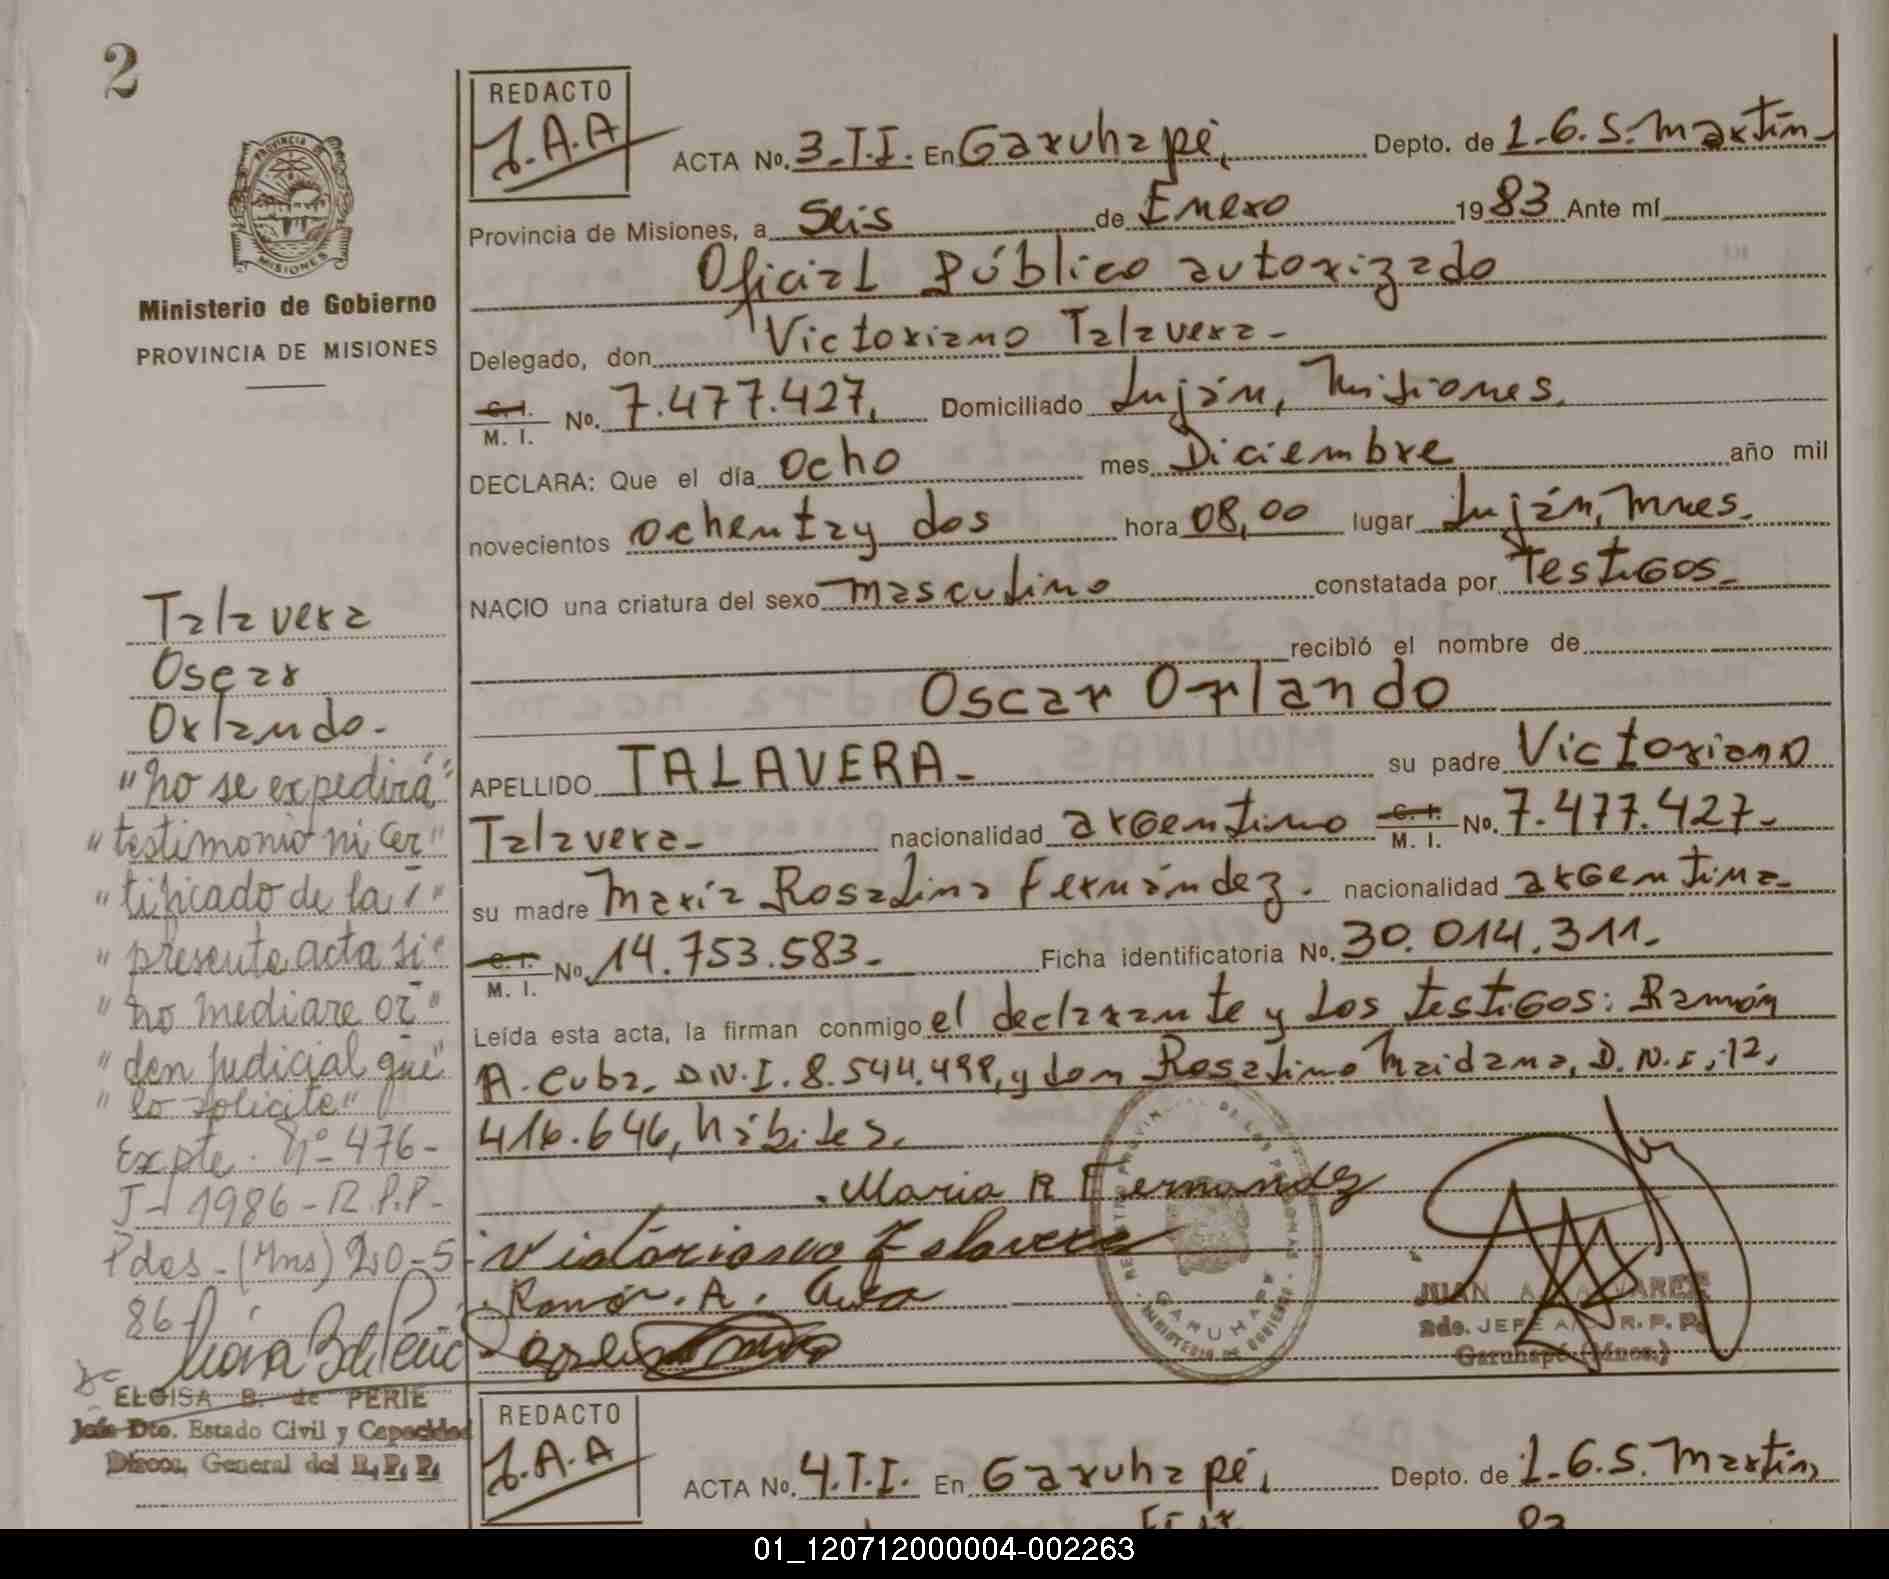 2
PROVINCIA DE
MISIONES
Ministerio de Gobierno
PROVINCIA DE MISIONES
Talavera
Oscar
Orlando.-
"no se expedirá"
"testimonio ni cer"
"tificado de la"
"presente acta si"
"no mediare or"
"den judicial que"
"lo solicite"
Expte. Nº 476-
J-1986-R.P.P.-
Pdas-(Mns) 20-5-
86-
ELOISA B. de PERIE
Jefe Dto. Estado Civil y Capacidad
Direcc. General del R. P. P.
REDACTO
J.A.A
ACTA No. 3.T.I. En Garuhapé, Depto. de L.G.S. Martín.-
Provincia de Misiones, a Seis de Enero 1983 Ante mí
Oficial Público autorizado
Delegado, don Victoriano Talavera.-
C. I. M. I. No. 7.477.427, Domiciliado Luján, Misiones,
DECLARA: Que el día ocho mes Diciembre año mil
novecientos ochenta y dos hora 08,00 lugar Luján, Mnes.
NACIO una criatura del sexo masculino constatada por Testigos.-
recibió el nombre de
Oscar Orlando
APELLIDO TALAVERA.- su padre Victoriano
Talavera.- nacionalidad argentino C. I. M. I. No. 7.477.427.-
su madre María Rosalina Fernández. nacionalidad argentina.-
C. I. M. I. No. 14.753.583.- Ficha identificatoria No. 30.014.311.-
Leída esta acta, la firman conmigo el declarante y los testigos: Ramón
A. Cuba, D.N.I. 8.544.498, y don Rosalino Maidana, D.N.I. 12.
416.646, hábiles.
Maria R Fernandez
Victoriano Talavera
Ramón. A. Cuba
REGISTRO PROVINCIAL DE LAS PERSONAS
GARUHAPE
MINISTERIO DE GOBIERNO
JUAN A. ALVAREZ
2do. JEFE R. P. P.
Garuhapé (Mnes.)
REDACTO
J.A.A
ACTA No. 4.T.I. En Garuhapé, Depto. de L.G.S. Martín,
01_120712000004-002263